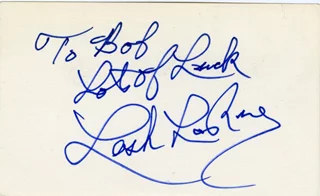 To Bob
Lot of Luck
Lash LaRue